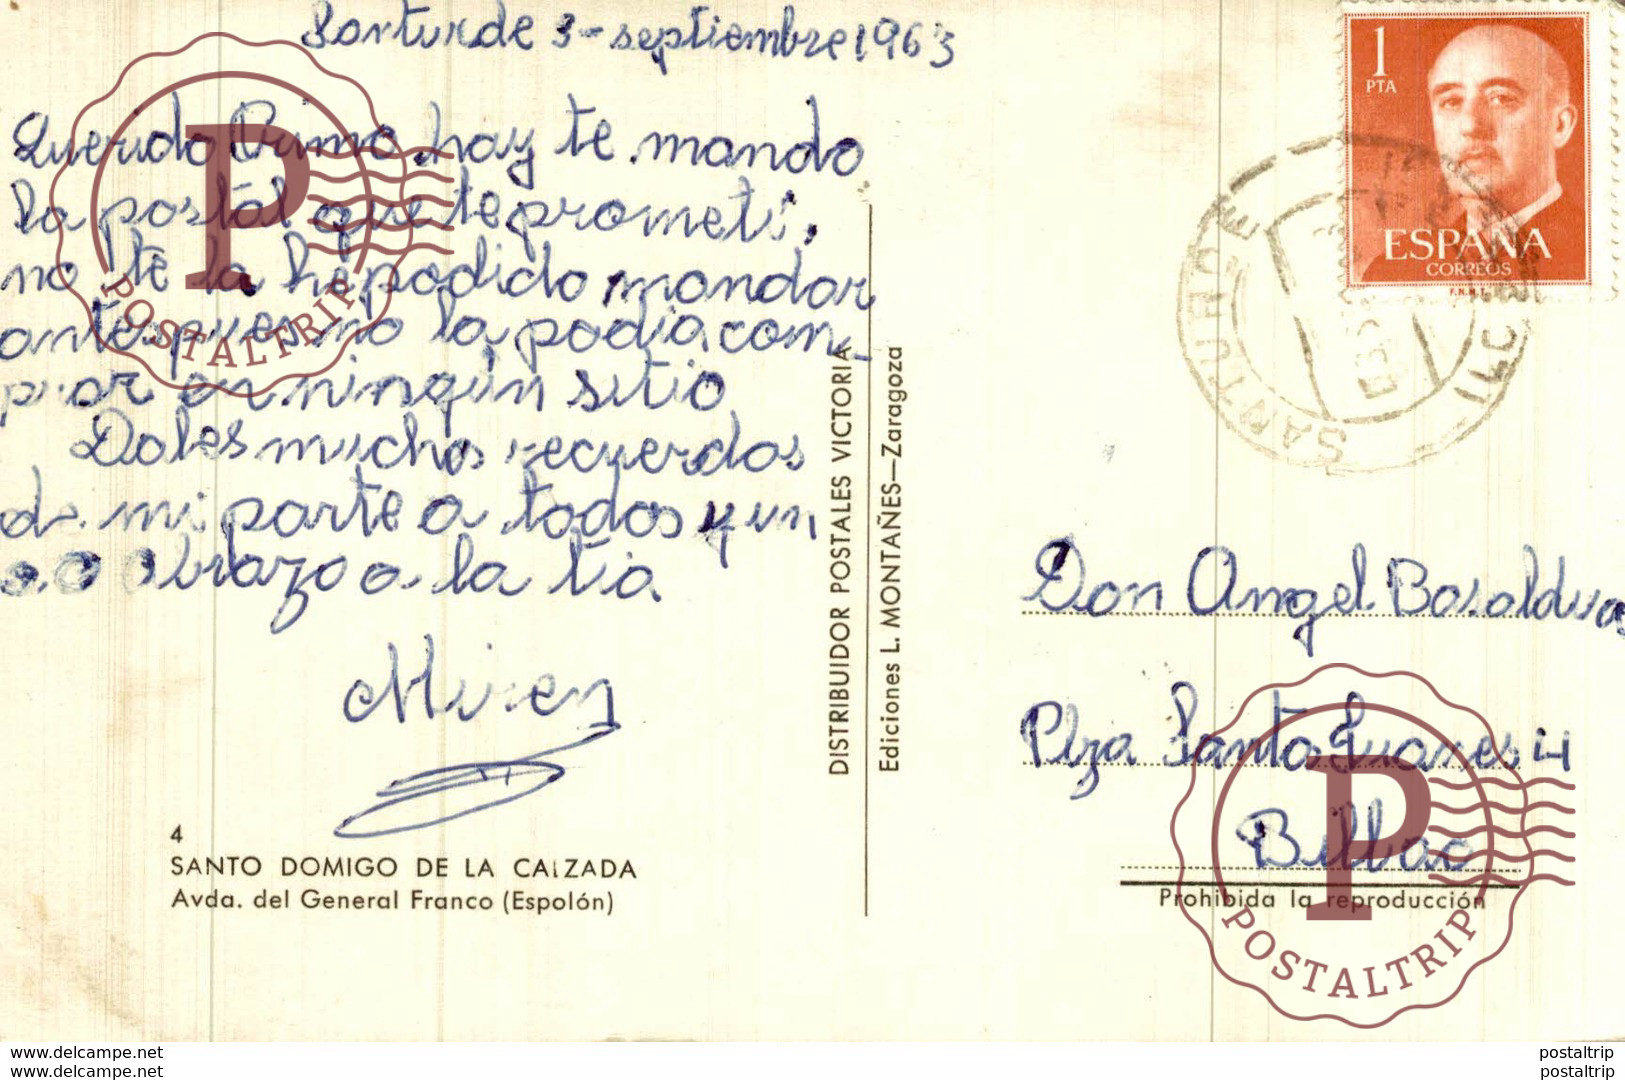 Santurde 3-septiembre 1963
Querido Primo hay te mando
la postál que te prometi,
no te la he podido mandar
antes pues no la podia com-
prar en ningún sitio
Dales muchos recuerdos
de mi parte a todos y un
abrazo a la tia.
Miren
4
SANTO DOMIGO DE LA CALZADA
Avda. del General Franco (Espolón)
DISTRIBUIDOR POSTALES VICTORIA
Ediciones L. MONTAÑES—Zaragoza
1
PTA
ESPAÑA
CORREOS
F.N.M.T.
SANTURDE
Don Angel Basalduas
Plza Santos Juanes 14
Bilbao
Prohibida la reproducción
P
POSTALTRIP
P
POSTALTRIP
www.delcampe.net
postaltrip
www.delcampe.net
postaltrip